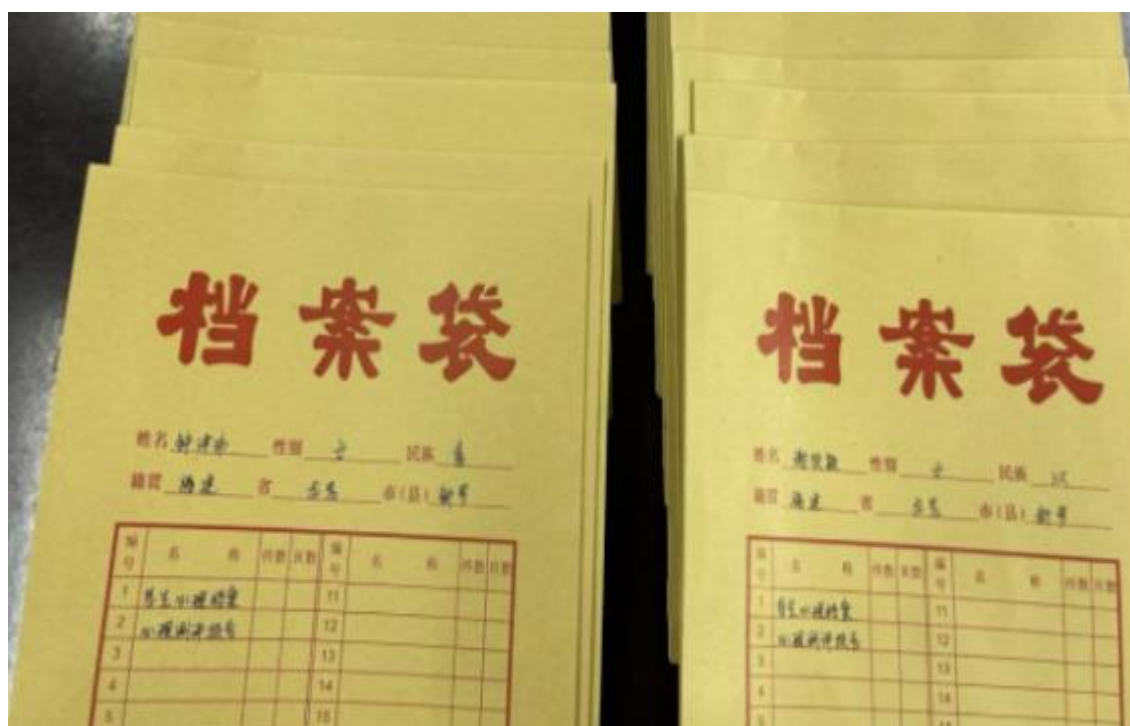 档案袋
姓名 性别 女 民族
籍贯 省 市(县)
编号 名称 件数 页数 编号 名称 件数 页数
1 学生心理档案 11
2 心理测评报告 12
3 13
4 14
5 15
档案袋
姓名 性别 女 民族 汉
籍贯 省 市(县)
编号 名称 件数 页数 编号 名称 件数 页数
1 学生心理档案 11
2 心理测评报告 12
3 13
4 14
5